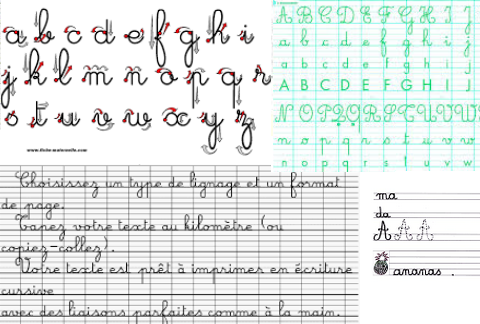 a b c d e f g h i
j k l m n o p q r
s t u v w x y z
www.fiche-maternelle.com
A B C D E F G H I J
a b c d e f g h i j
a b c d e f g h i j
A B C D E F G H I J
N O P Q R S T U V W
n o p q r s t u v w
n o p q r s t u v w
Choisissez un type de lignage et un format
de page.
Tapez votre texte au kilomètre (ou
copiez-collez).
Votre texte est prêt à imprimer en écriture
cursive
avec des liaisons parfaites comme à la main.
ma
da
A A A
ananas .